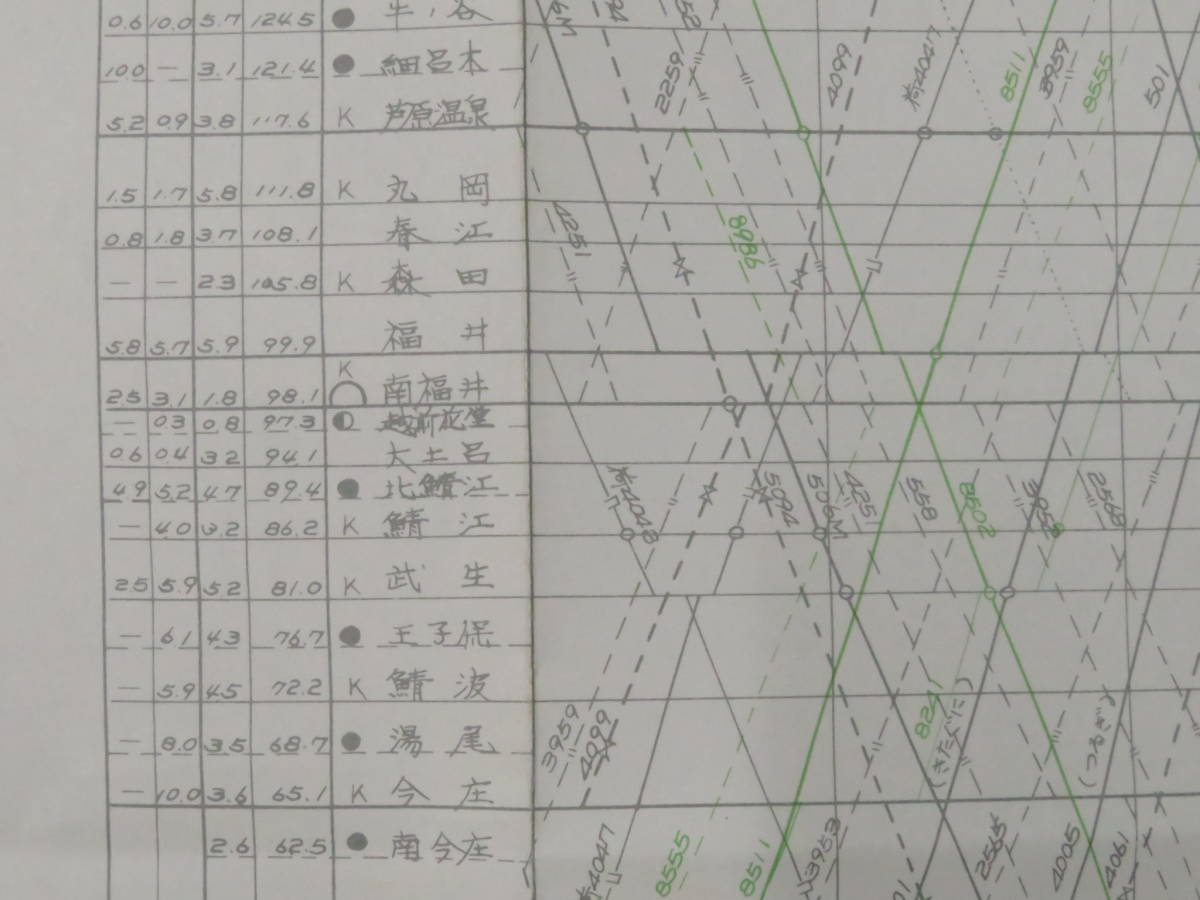 0.6 10.0 5.7 124.5 ● 牛ノ谷
10.0 — 3.1 121.4 ● 細呂木
5.2 0.9 3.8 117.6 K 芦原温泉
1.5 1.7 5.8 111.8 K 丸岡
0.8 1.8 3.7 108.1 春江
— — 2.3 105.8 K 森田
5.8 5.7 5.9 99.9 福井
2.5 3.1 1.8 98.1 K 南福井
— 0.3 0.8 97.3 越前花堂
0.6 0.4 3.2 94.1 大土呂
4.9 5.2 4.7 89.4 ● 北鯖江
— 4.0 3.2 86.2 K 鯖江
2.5 5.9 5.2 81.0 K 武生
— 6.1 4.3 76.7 ● 王子保
— 5.9 4.5 72.2 K 鯖波
— 8.0 3.5 68.7 ● 湯尾
— 10.0 3.6 65.1 K 今庄
2.6 62.5 ● 南今庄
2259
4099
4047
8511
3959
8555
501
4251
8986
4048
5094
506M
4251
558
8502
3958
2568
3959
4099
8241
(きたぐに)
(つるぎ)
4047
8555
8511
3953
2565
4005
4061